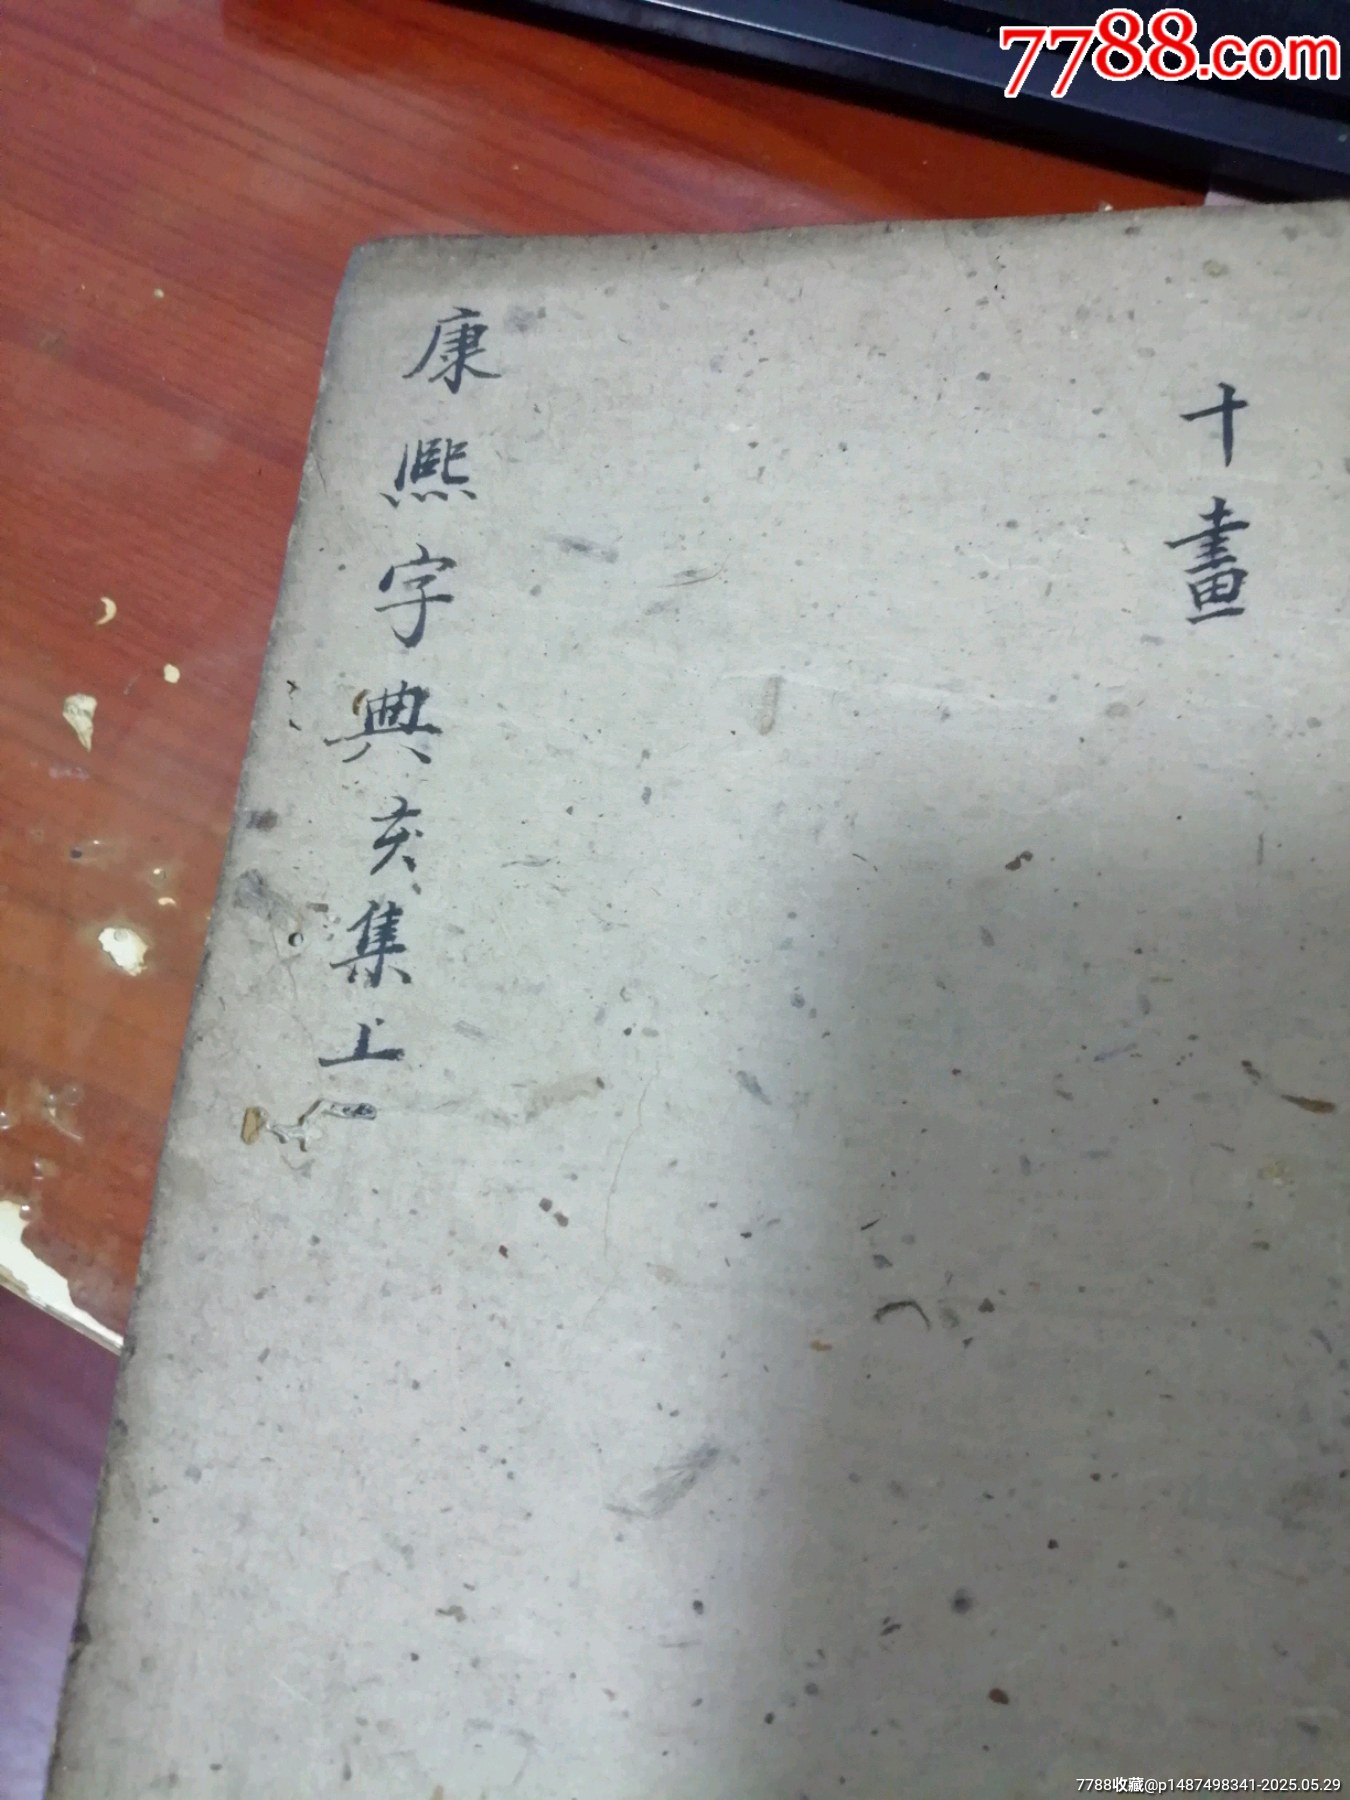 7788.com
十畫
康熙字典亥集上
7788收藏@p1487498341-2025.05.29